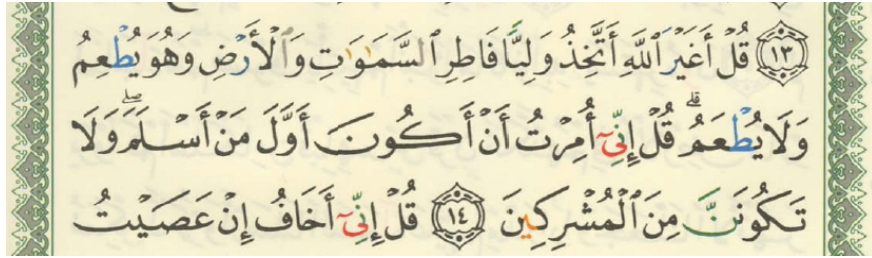 ﴿١٣﴾ قُلْ أَغَيْرَ ٱللَّهِ أَتَّخِذُ وَلِيًّا فَاطِرِ ٱلسَّمَٰوَٰتِ وَٱلْأَرْضِ وَهُوَ يُطْعِمُ
وَلَا يُطْعَمُ ۗ قُلْ إِنِّىٓ أُمِرْتُ أَنْ أَكُونَ أَوَّلَ مَنْ أَسْلَمَ ۖ وَلَا
تَكُونَنَّ مِنَ ٱلْمُشْرِكِينَ ﴿١٤﴾ قُلْ إِنِّىٓ أَخَافُ إِنْ عَصَيْتُ